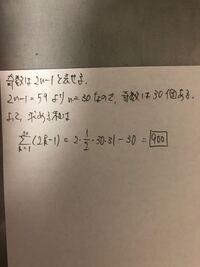 奇数は2n-1と表せる。
2n-1=59よりn=30なので、奇数は30個ある。
よって、求める和は
\sum_{k=1}^{30}(2k-1) = 2・\frac{1}{2}・30・31-30 = 900